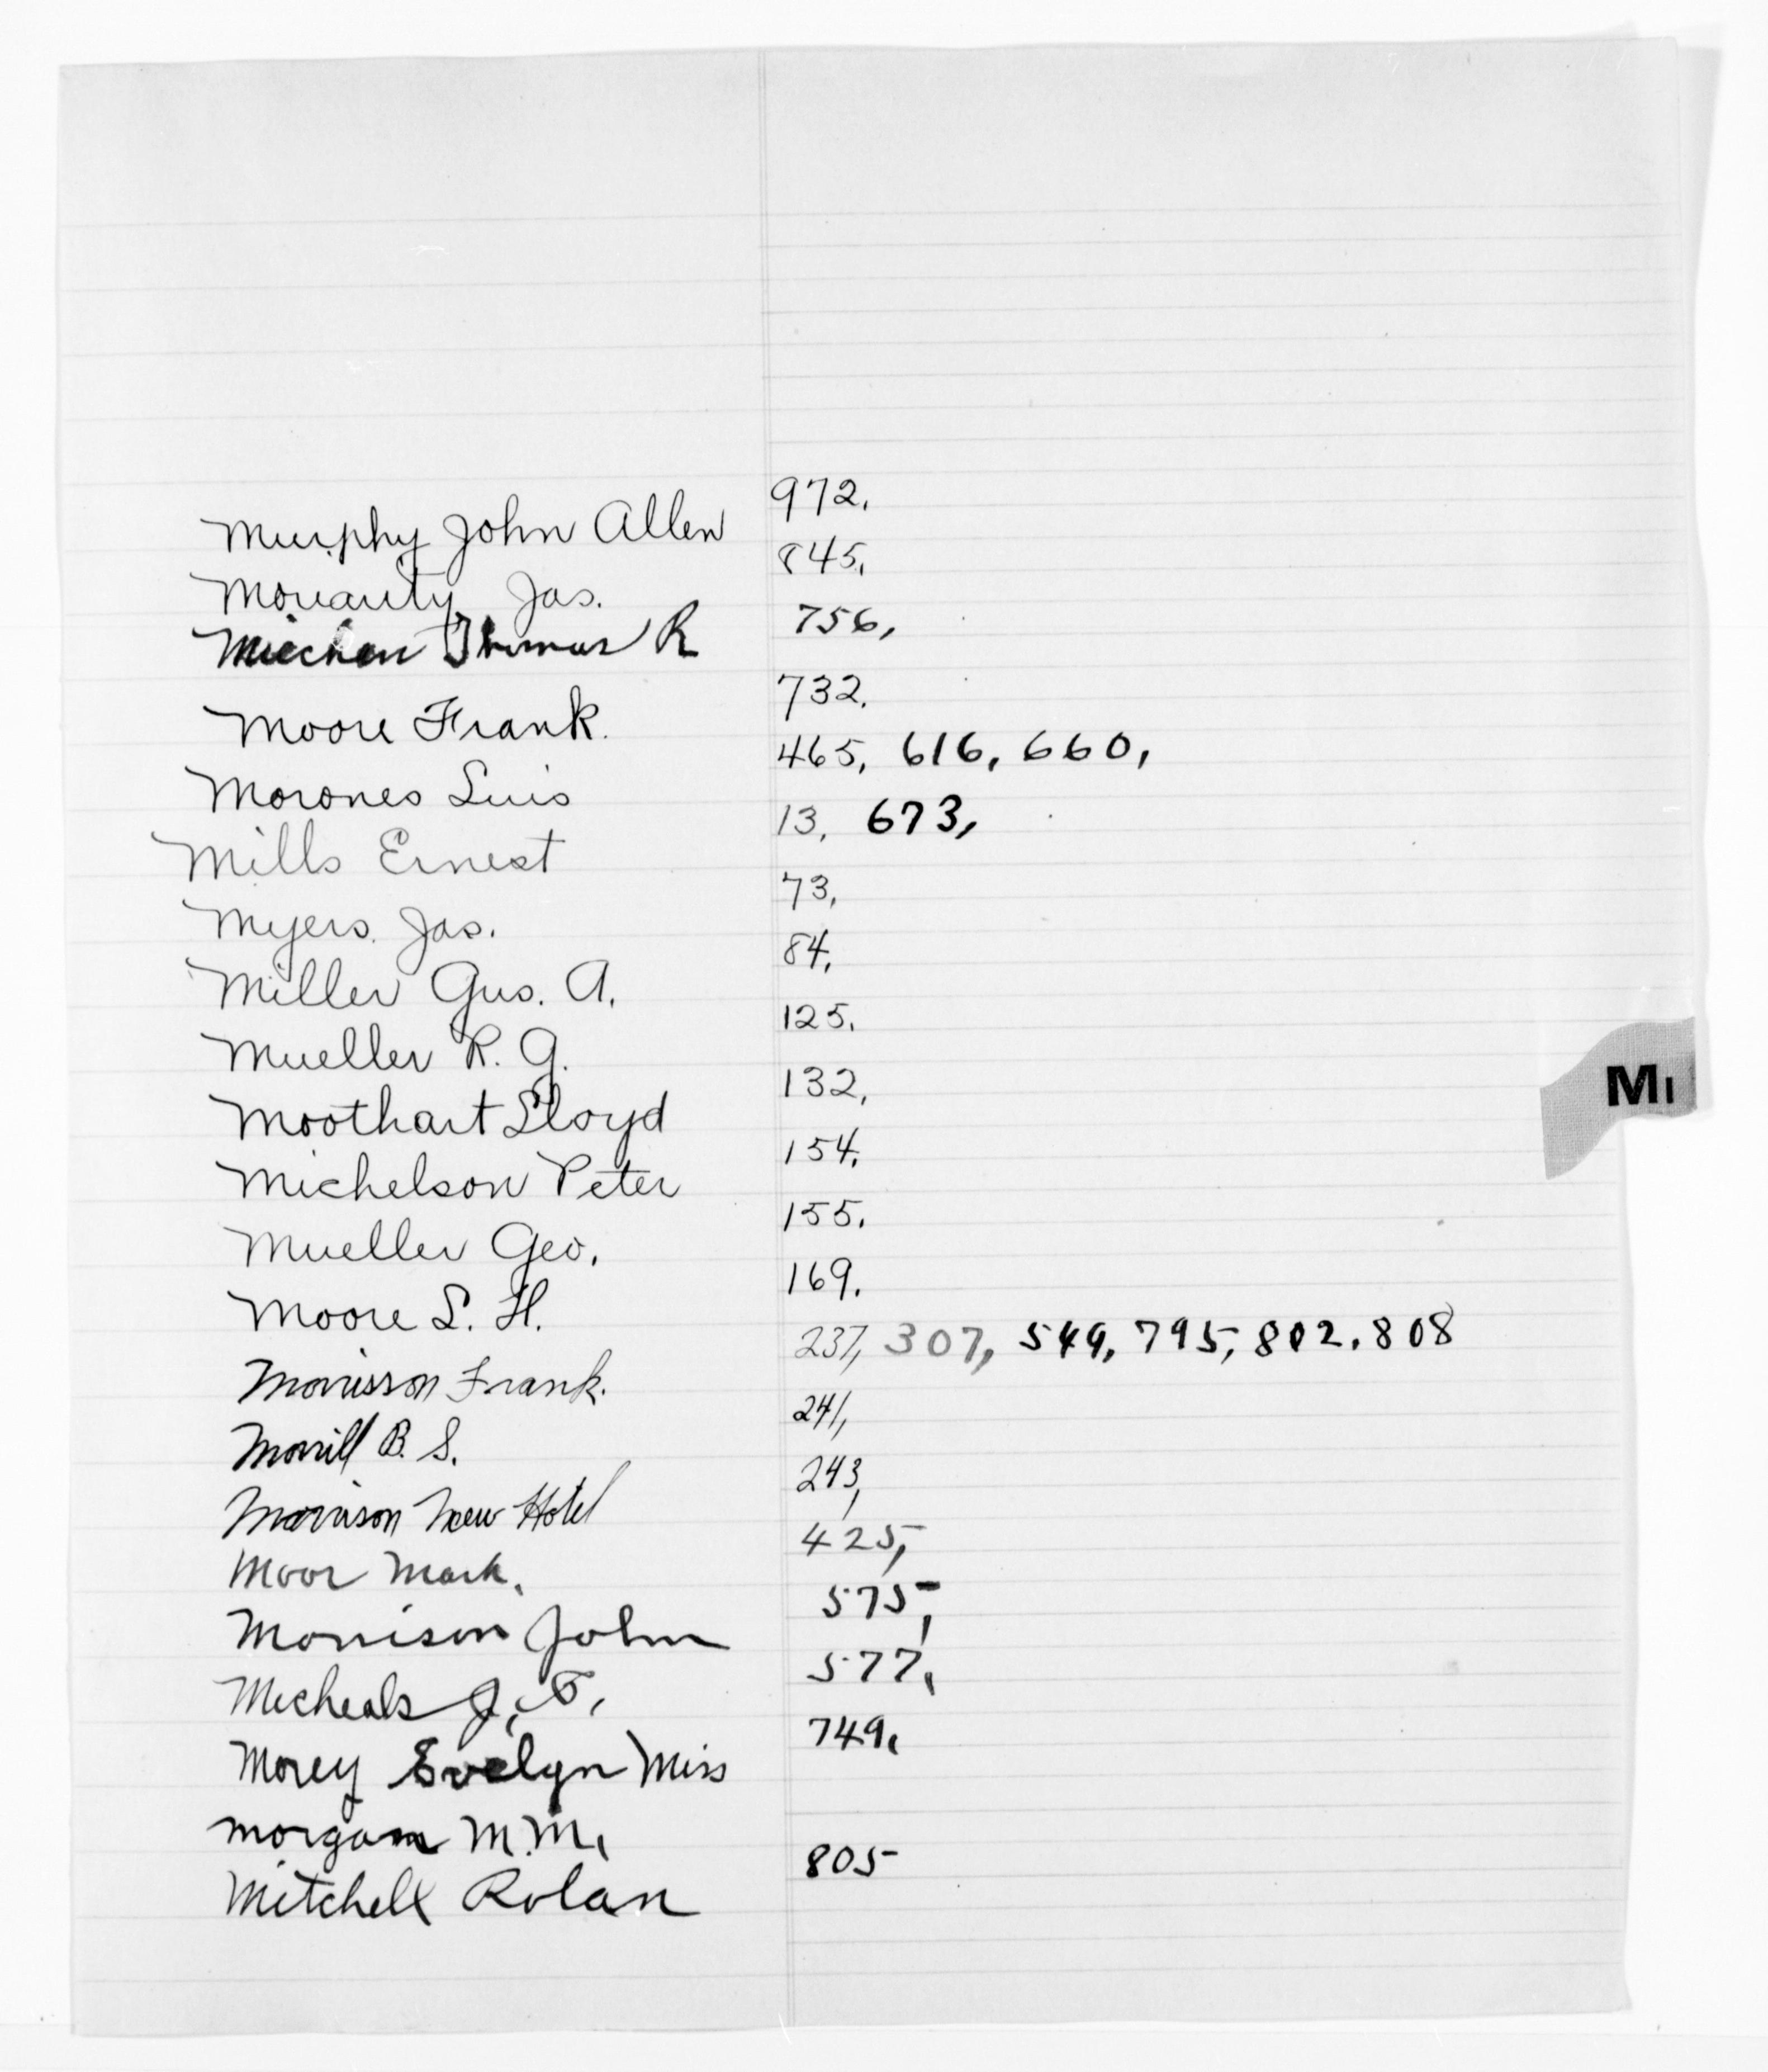 Murphy John Allen 972.
Moriarity Jas. 845.
Thomas R 756,
Moore Frank. 732.
Morones Luis 465, 616, 660,
Mills Ernest 13, 673,
Myers Jas. 73,
Miller Gus. A. 84,
Mueller R. G. 125.
Moothart Lloyd 132,
Michelson Peter 154,
Mueller Geo. 155.
Moore L. H. 169.
Morrisson Frank. 237, 307, 549, 795, 802. 808
Morrill B. S. 241,
Morrison New Hotel 243,
Moor Mark. 425,
Morrison John 575,
Micheals J. F. 577,
Morey Evelyn Miss 749,
Morgan M. M.
Mitchell Rolan 805
Mi